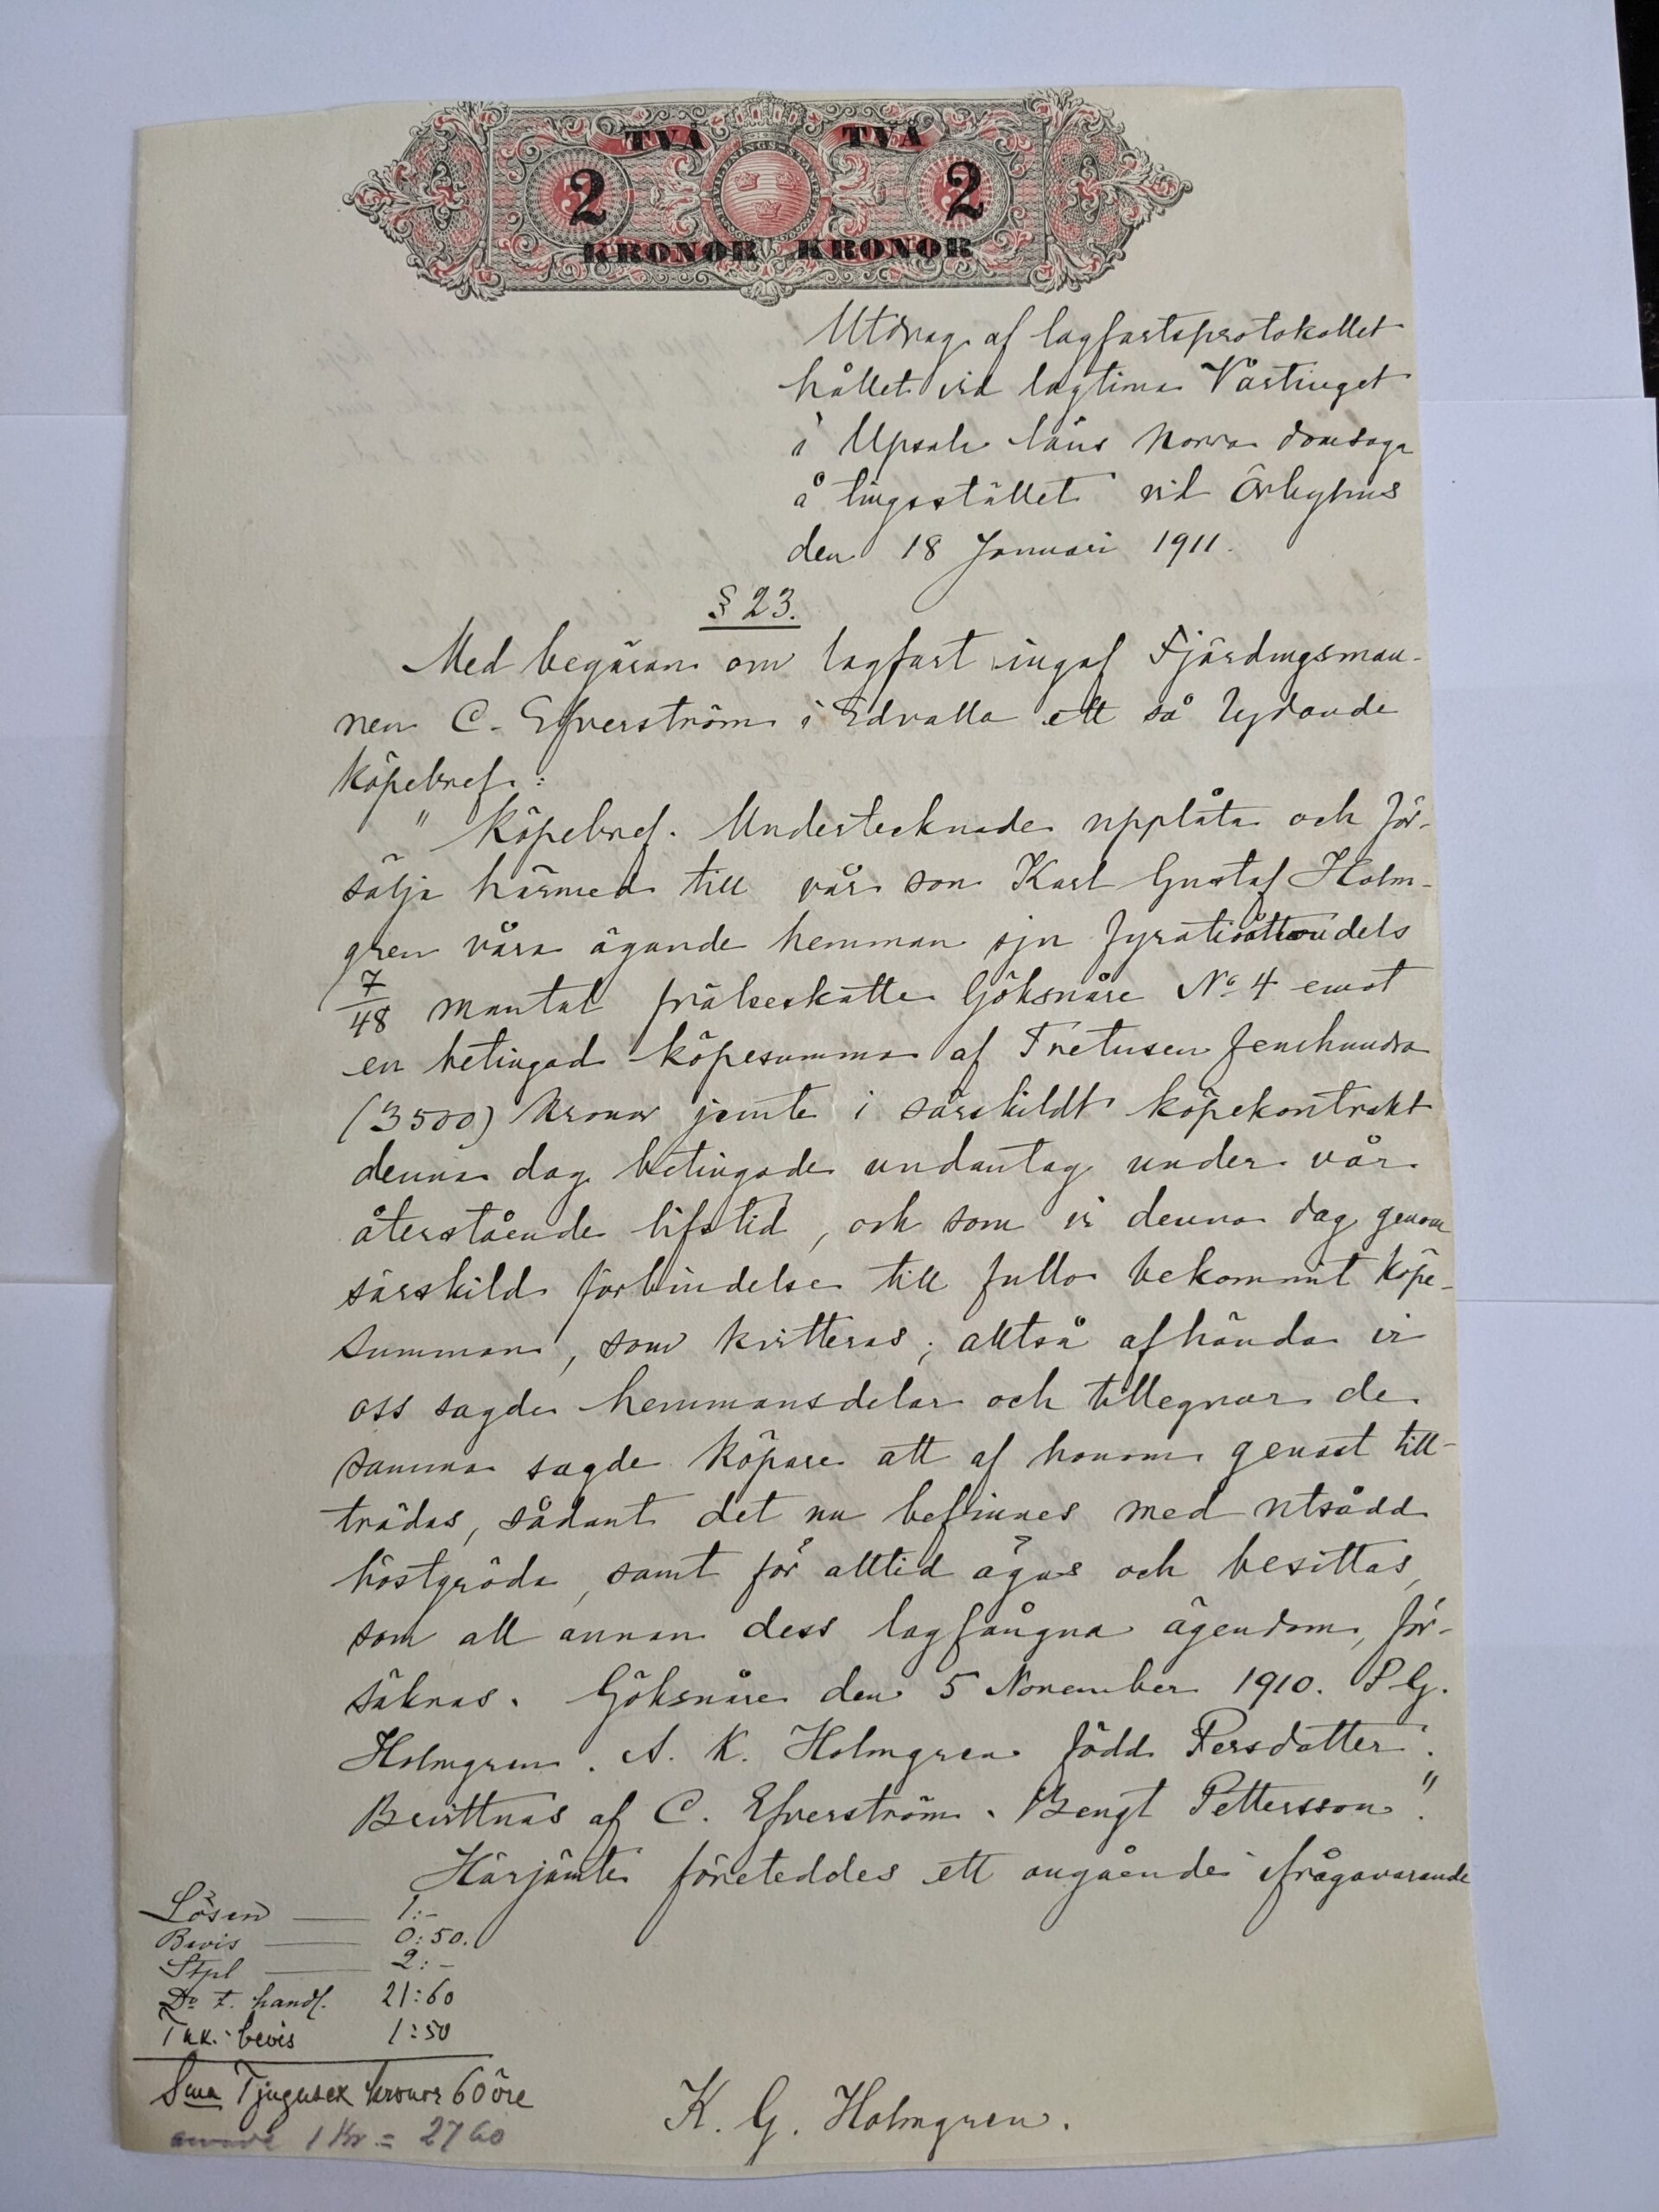 TVÅ TVÅ
2 2
KRONOR KRONOR
Utdrag af lagfartsprotokollet
hållet vid lagtima Vårtinget
i Upsala läns Norra domsaga
å tingsstället vid Örbyhus
den 18 Januari 1911.
§ 23.
Med begäran om lagfart ingaf Fjärdingsman-
nen C. Efverström i Edvalla ett så lydande
köpebref:
" Köpebref. Undertecknade upplåta och för-
sälja härmed till vår son Karl Gustaf Holm-
gren våra ägande hemman sju fyratioåttondels
7/48 mantal frälseskatte Göksnåre No 4 emot
en betingad köpesumma af Tretusen femhundra
(3500) kronor jemte i särskildt köpekontrakt
denna dag betingade undantag under vår
återstående lifstid, och som vi denna dag genom
särskild förbindelse till fullo bekommit köpe-
summan, som kvitteras; alltså afhända vi
oss sagde hemmansdelar och tillegnar de
samma sagde köpare att af honom genast till-
trädas, sådant det nu befinnes med utsådd
höstgröda, samt för alltid ägas och besittas,
som all annan dess lagfångna ägendom, för-
säkras. Göksnåre den 5 November 1910. P G.
Holmgren. A. K. Holmgren född Persdotter.
Bevittnas af C. Efverström. Bengt Pettersson."
Härjämte företeddes ett angående ifrågavarande
Lösen — 1:-
Bevis — 0:50.
Stpl — 2:-
Do t. handl. 21:60
Ink.-bevis 1:50
Sma Tjugusex kronor 60 öre
1 Kr = 27 60
K. G. Holmgren.